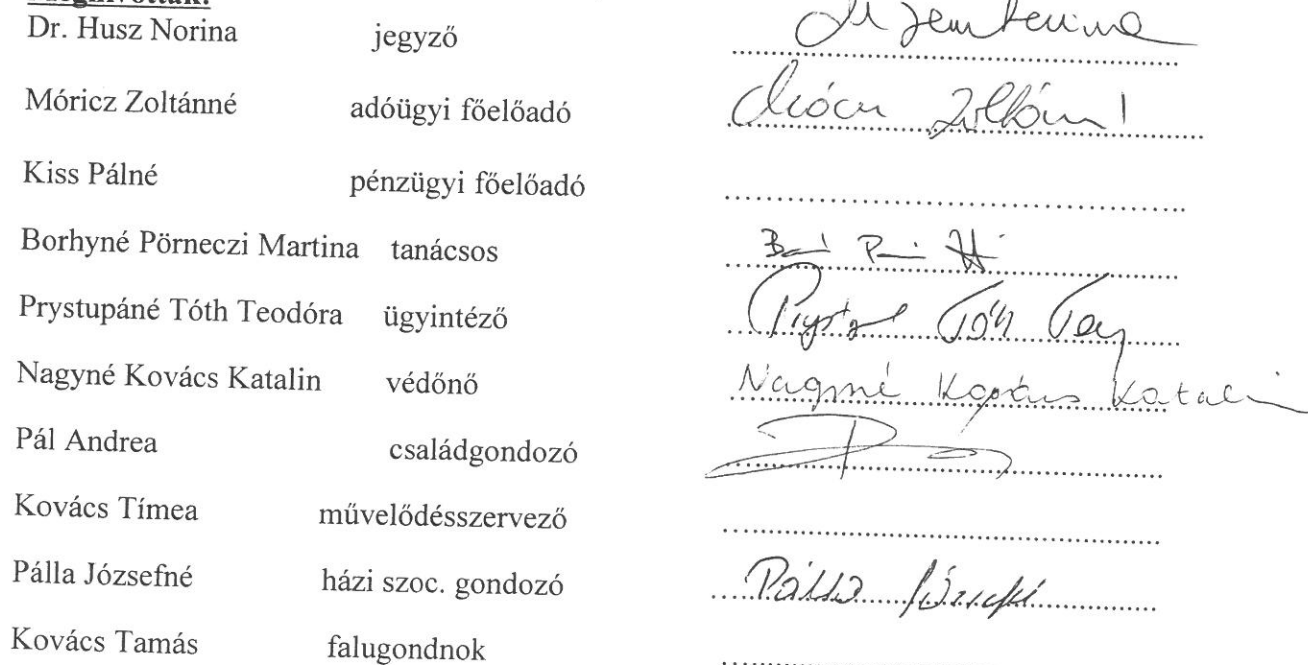 Dr. Husz Norina jegyző
Móricz Zoltánné adóügyi főelőadó Móricz Zoltánné
Kiss Pálné pénzügyi főelőadó ........................................
Borhyné Pörneczi Martina tanácsos
Prystupáné Tóth Teodóra ügyintéző Tóth
Nagyné Kovács Katalin védőnő Nagyné Kovács Katalin
Pál Andrea családgondozó
Kovács Tímea művelődésszervező ........................................
Pálla Józsefné házi szoc. gondozó Pálla Józsefné
Kovács Tamás falugondnok